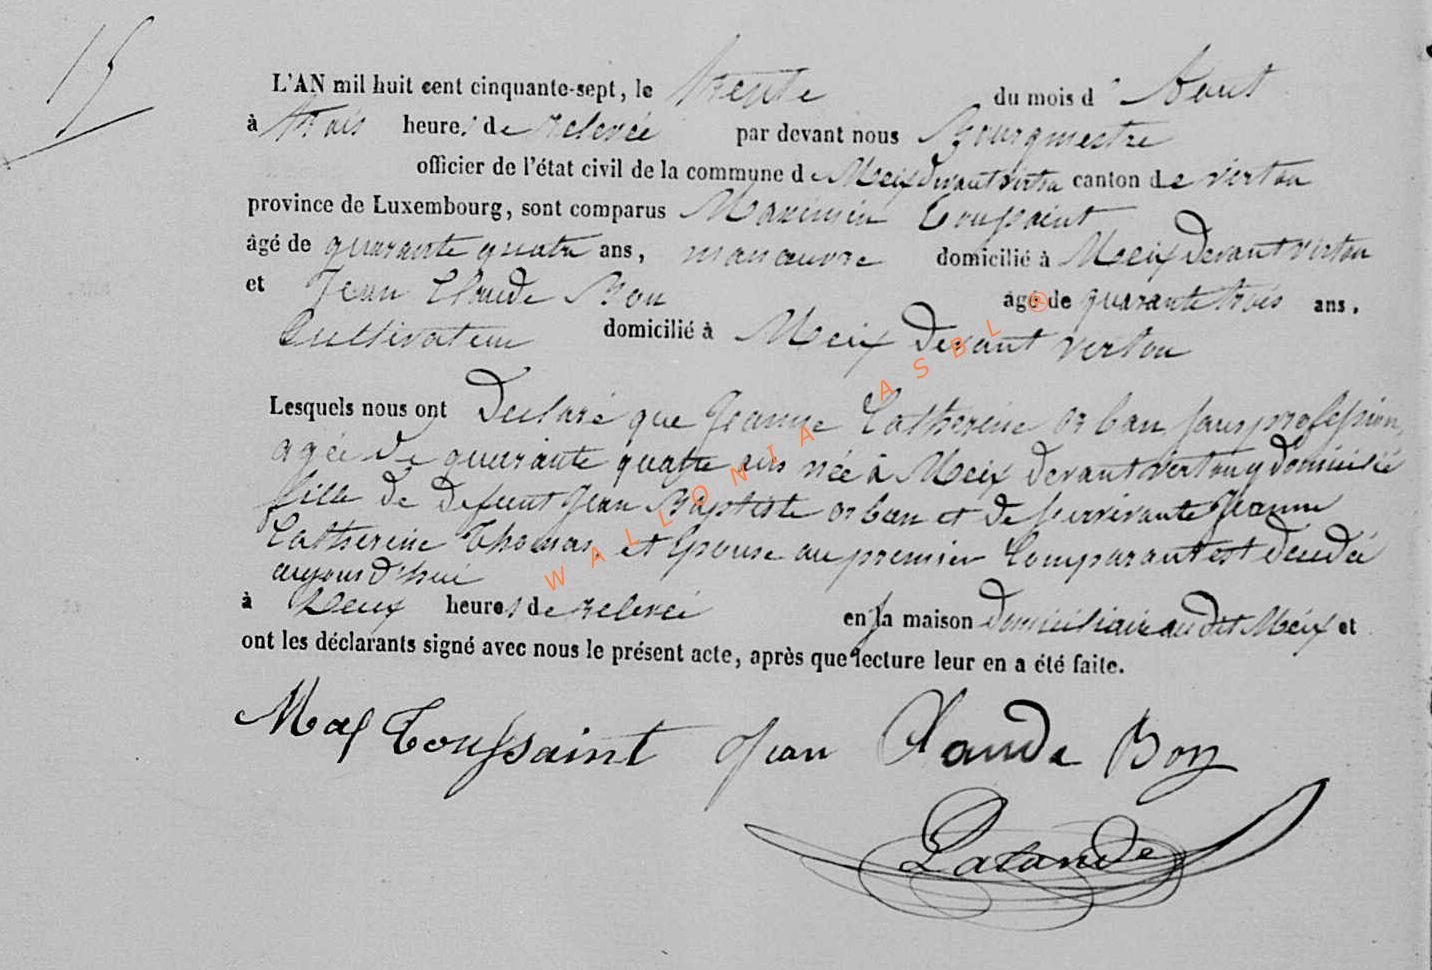 15
L'AN mil huit cent cinquante-sept, le trente du mois d'Aout
à trois heures de relevée par devant nous Bourgmestre
officier de l'état civil de la commune de Meix devant virton canton de virton
province de Luxembourg, sont comparus Maximin Toussaint
âgé de quarante quatre ans, manœuvre domicilié à Meix Devant virton
et Jean Claude Bon âgé de quarante trois ans,
Cultivateur domicilié à Meix Devant virton
Lesquels nous ont Declaré que Jeanne Catherine orban sans profession,
agée de quarante quatre ans née à Meix devant virton y domicilié
fille de Defunt Jean Baptiste orban et de survivante Jeanne
Catherine Thomas, et Epouse au premier Comparant est decedée
aujourd'hui
à Deux heures de relevée en sa maison domiciliaire audit Meix et
ont les déclarants signé avec nous le présent acte, après que lecture leur en a été faite.
Max Toussaint Jean Claude Bon
Lalande
WALLONIA ASBL ®